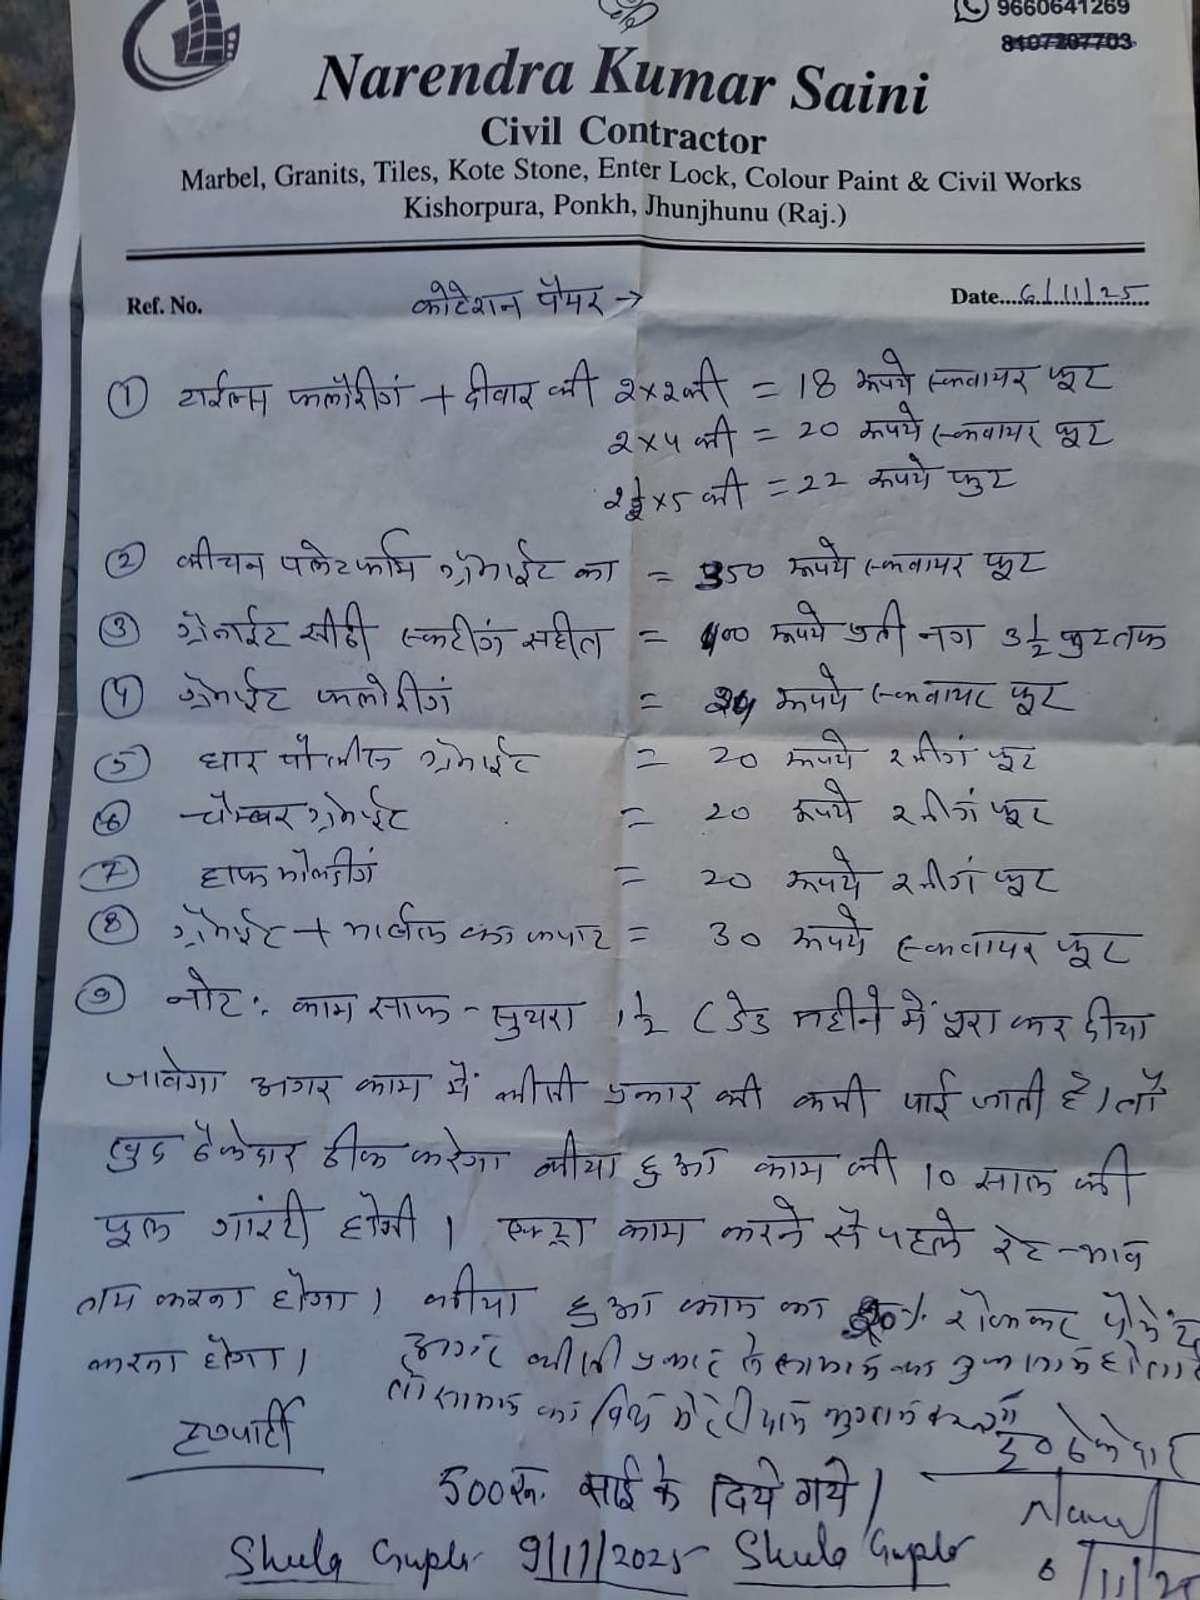 9660641269
8107207703
Narendra Kumar Saini
Civil Contractor
Marbel, Granits, Tiles, Kote Stone, Enter Lock, Colour Paint & Civil Works
Kishorpura, Ponkh, Jhunjhunu (Raj.)
Ref. No. कोटेशन पैपर → Date....6/11/25
① टाईल्स फ्लोरीगं + दीवार की 2×2 की = 18 रूपये स्कवायर फूट
2×4 की = 20 रूपये स्कवायर फूट
2½×5 की = 22 रूपये फुट
② कीचन पलेटफार्म ग्रेनाईट का = 350 रूपये स्कवायर फूट
③ ग्रेनाईट सीढी स्कटीगं सहीत = 400 रूपये प्रती नग 3½ फुट तक
④ ग्रेनाईट फ्लोरीगं = रूपये स्कवायर फूट
⑤ धार पौलीस ग्रेनाईट = 20 रूपये रनीगं फूट
⑥ चैम्बर ग्रेनाईट = 20 रूपये रनीगं फूट
⑦ हाफ मोलडीगं = 20 रूपये रनीगं फूट
⑧ ग्रेनाईट + मार्बल का कपाट = 30 रूपये स्कवायर फूट
⑨ नोट: काम साफ - सुथरा 1½ (डेड महीने में पूरा कर दीया
जावेगा अगर काम में कीसी प्रकार की कमी पाई जाती है। तो
खुद ठेकेदार ठीक करेगा कीया हुआ काम की 10 साल की
फूल गारंटी होगी। एक्ट्रा काम करने से पहले रेट - भाव
तय करना होगा। कीया हुआ काम का % रोककर पैमेंट
करना होगा। अगर कीसी प्रकार के सामान का नुकसान होता है
तो सामान का भुगतान
ह० पार्टी ह० ठेकेदार
500 रू. साई के दिये गये।
Shula Gupta 9/11/2025 Shula Gupta
6/11/25